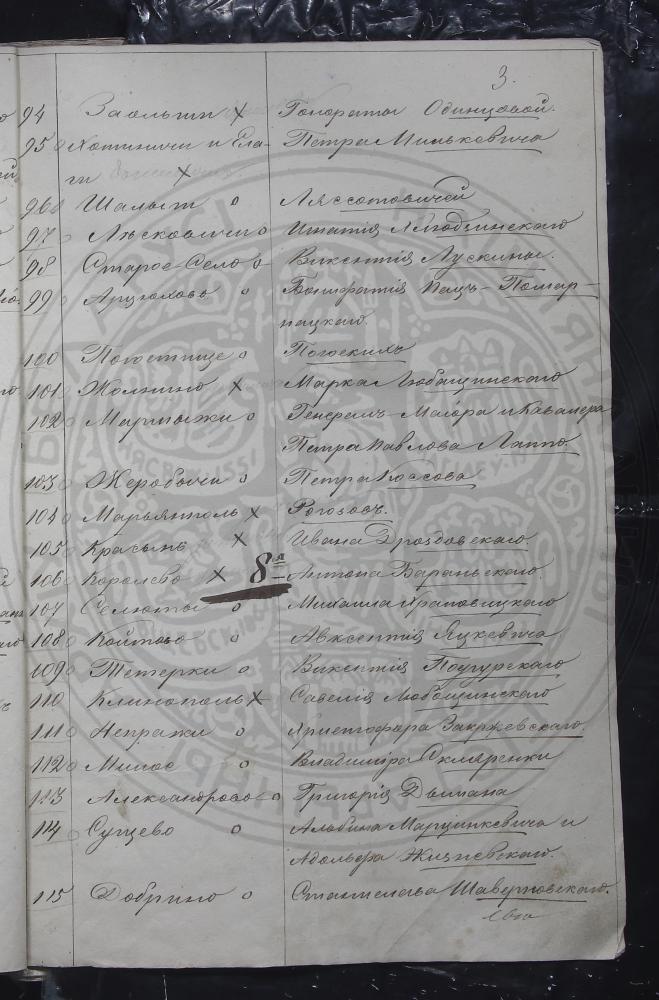 3.
94 Заольши х Гонораты Одинцовой.
95 Хотиничи и Ела- Петра Мильковича
ги х
96 Шалыт о Ляссотовичей
97 Лесковичи о Игнатія
98 Старое-Село о Викентія Лускины.
99 Арцюхово о Бонифатія Пацъ-Помар-
нацкаго.
100 Погостище о
101 Жолнино х Марка Любащинскаго
102 Мартыжи о Генералъ-Маіора и Кавалера
Петра Павлова Лаппо
103 Жеробычи о Петра Коссова
104 Марьянполь х Рогозовъ.
105 Красынь х Ивана Дроздовскаго.
106 Королево х 8я Антона Бараньскаго.
107 Селюты о Михаила Храповицкаго
108 Койтово о Авксентія Яцкевича
109 Тетерки о Викентія
110 Клинополь х Савелія Любощинскаго
111 Непражи о Христофора Закржевскаго.
112 Милое о Владиміра Скляренки
113 Александрово о Григорія Дымана
114 Сущево о Альбина Марцинкевича и
Адольфа Жизневскаго.
115 Добрино о Станислава Шаверновскаго.